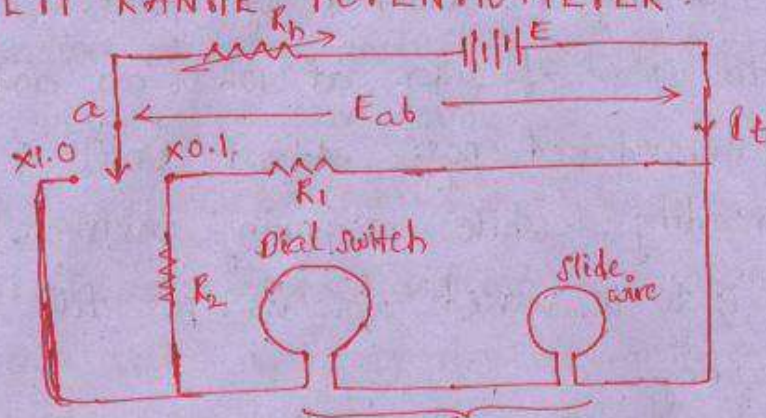 RANGE POTENTIOMETER.
Rh
E
a
Eab
It
x1.0
x0.1
R1
Dial switch
slide
wire
R2